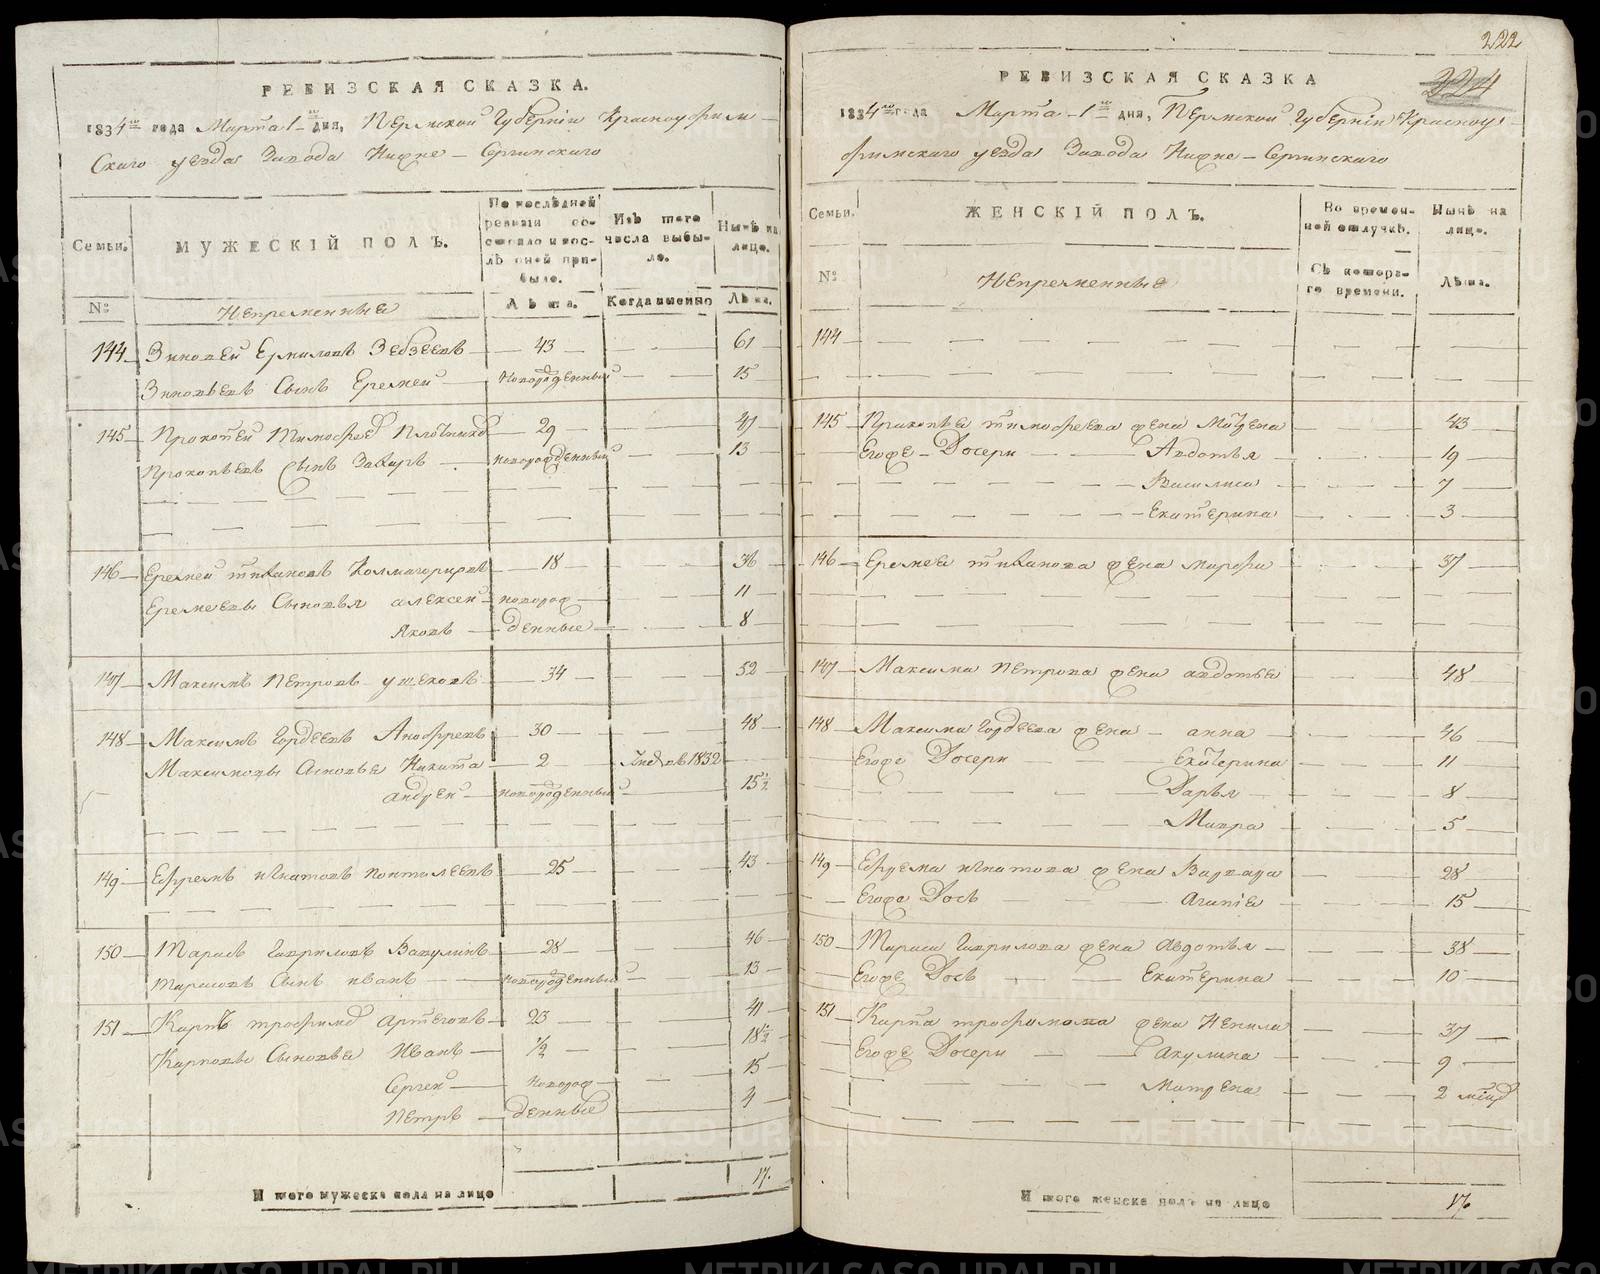 РЕВИЗСКАЯ СКАЗКА.
1834го года Марта 1го дня, Пермской Губернiи Красноуфим-
скаго уезда Завода Нижне-Сергинскаго
Семьи.
МУЖЕСКIЙ ПОЛЪ.
По последней ревизiи состояло и после оней прибыло.
Изъ того числа выбыло.
Ныне на лице.
№
Непременные
Лета.
Когда именно
Лета.
144 Зиновей Ермиловъ Зебзеевъ 43 61
Зиновьевъ Сынъ Еремей новорожденный 15
145 Прокопей Тимофеев Плотников 29 47
Прокопьевъ Сынъ Захаръ новорожденный 13
146 Еремей Тихановъ 18 36
Еремеевы Сыновья алексей новорож 11
Яковъ денные 8
147 Максимъ Петровъ ушековъ 34 52
148 Максимъ Гордеевъ Анофреевъ 30 48
Максимовы Сыновье Никита 2 въ 1832
андрей новорожденный 15 1/2
149 Ефремъ игнатовъ понтелеевъ 25 43
150 Тарасъ Гавриловъ Вакулинъ 28 46
Тарасовъ Сынъ иванъ новорожденный 13
151 Карпъ трофимов Артеговъ 23 41
Карповы Сыновье Иванъ 1/2 18 1/2
Сергей новорож 15
Петръ денные 4
И того мужеска пола на лицо 17.
222
224
РЕВИЗСКАЯ СКАЗКА
1834го года Марта 1го дня, Пермской Губернiи Красноу-
фимскаго уезда Завода Нижне-Сергинскаго
Семьи.
ЖЕНСКIЙ ПОЛЪ.
Во временной отлучке.
Ныне на лице.
№
Непременные
Съ котораго времени.
Лета.
144
145 Прокопья тимофеева жена Матрена 43
Егоже Дочери Авдотья 19
Василиса 7
Екатерина 3
146 Еремея тиханова жена марфа 37
147 Максима Петрова жена авдотья 48
148 Максима Гордеева жена анна 46
Егоже Дочери Екатерина 11
Дарья 8
Мавра 5
149 Ефрема игнатова жена Варвара 28
Егоже Дочь Агапiя 15
150 Тараса Гаврилова жена Авдотья 38
Егоже Дочь Екатерина 10
151 Карпа трофимова жена Ненила 37
Егоже Дочери Акулина 9
Матрена 2 месяц
И того женска пола на лицо 17